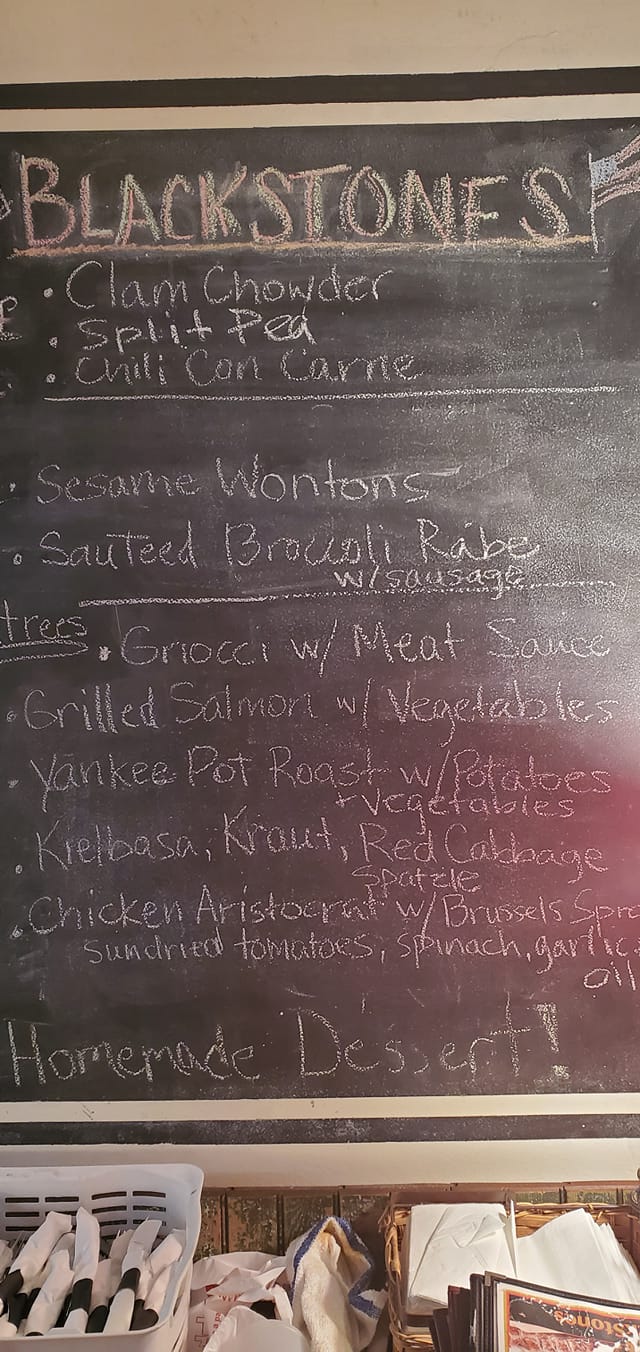 BLACKSTONES
• Clam Chowder
• Split Pea
• Chili Con Carne
• Sesame Wontons
• Sauteed Broccoli Rabe
w/sausage
trees • Gnocci w/ Meat Sauce
• Grilled Salmon w/ Vegetables
• Yankee Pot Roast w/Potatoes
+Vegetables
• Kielbasa, Kraut, Red Cabbage
Spatzle
• Chicken Aristocrat w/Brussels Spro
sundried tomatoes, spinach, garlic
oil
Homemade Dessert!